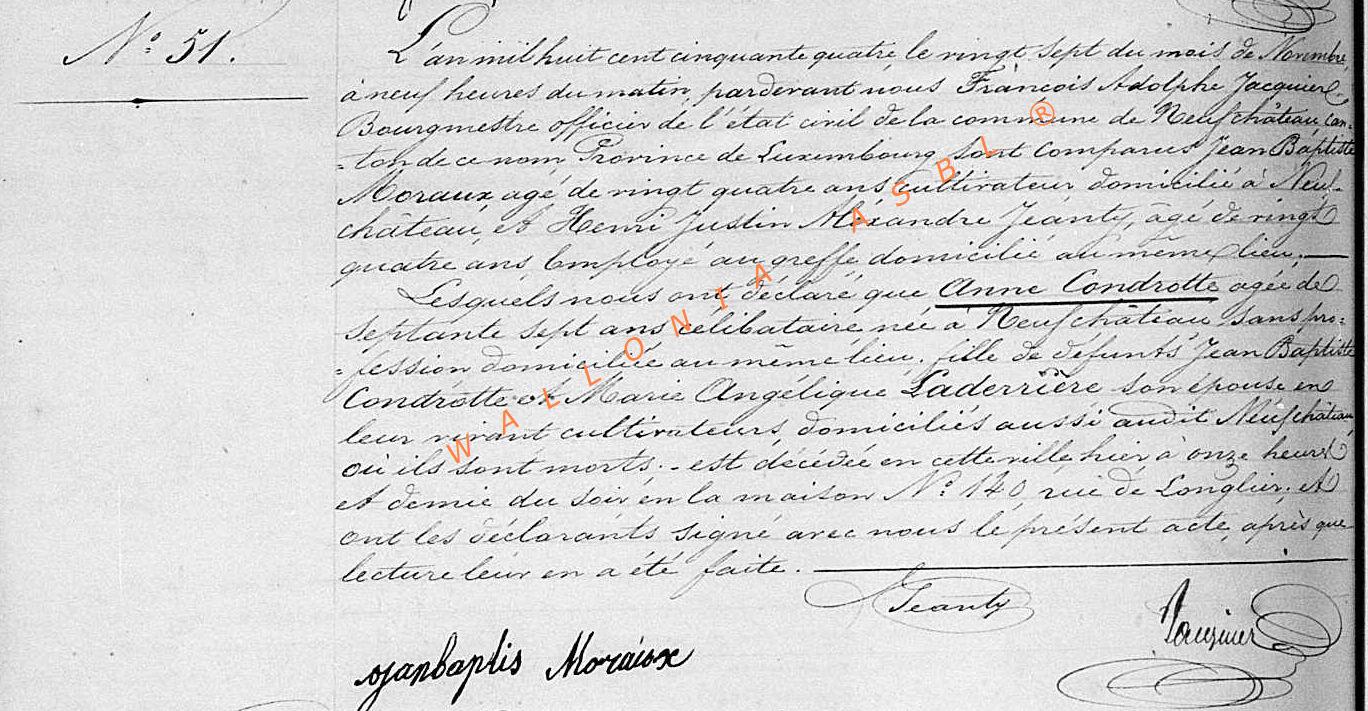 N° 51.
L'an mil huit cent cinquante quatre le vingt sept du mois de Novembre
à neuf heures du matin, pardevant nous François Adolphe Jacquier
Bourgmestre officier de l'état civil de la commune de Neufchâteau can-
-ton de ce nom, Province de Luxembourg sont comparus Jean Baptiste
Moraux agé de vingt quatre ans cultivateur domicilié à Neuf-
château, et Henri Justin Aléxandre Jeanty, âgé de vingt
quatre ans Employé au greffe domicilié au même lieu,
Lesquels nous ont déclaré que Anne Condrotte agée de
septante sept ans célibataire née à Neufchâteau, sans pro-
-fession domiciliée au même lieu, fille de défunts Jean Baptiste
Condrotte et Marie Angélique Laderrière son épouse en
leur vivant cultivateurs, domiciliés aussi audit Neufchâteau
où ils sont morts. - est décédée en cette ville hier à onze heures
et demie du soir en la maison N° 140 rue de Longlier. et
ont les déclarants signé avec nous le présent acte, après que
lecture leur en a été faite.
Jeanty
Jacquier
janbaptis Moraux
WALLONIA ASBL ®